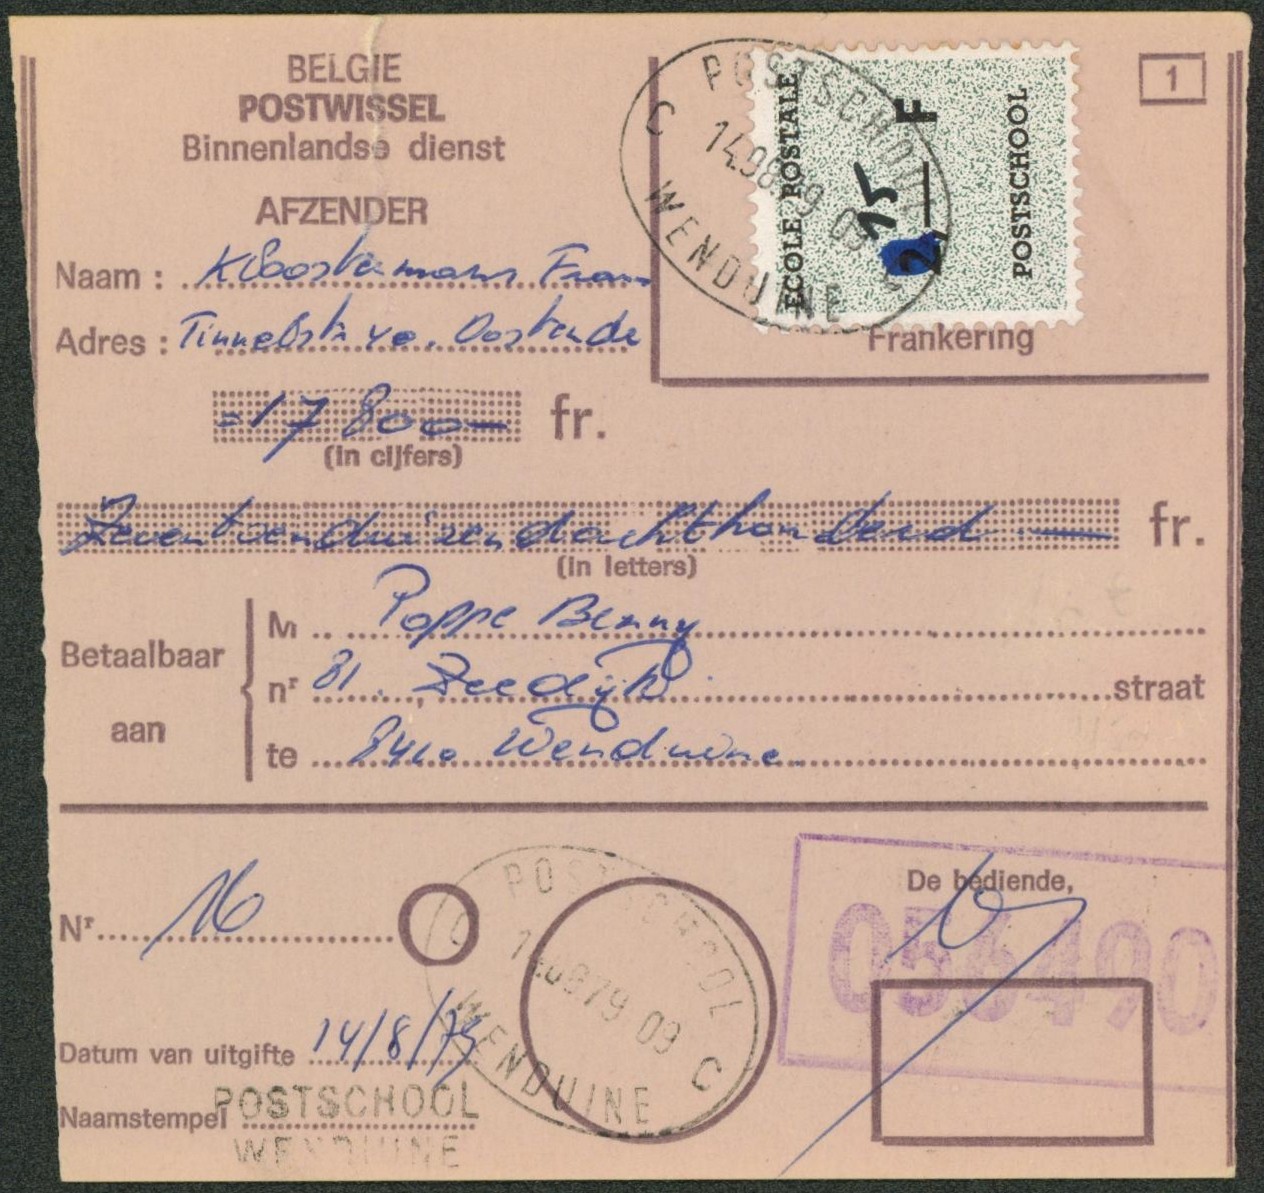 BELGIE
POSTWISSEL
Binnenlandse dienst
AFZENDER
Naam : Kloostermans Frans
Adres : Tinnelstr 40. Oostende
1
ECOLE POSTALE
2,— F
15
POSTSCHOOL
POSTSCHOOL
C 14.08.79 09 C
WENDUINE
Frankering
=17 800— fr.
(in cijfers)
Zeventienduizendachthonderd — fr.
(in letters)
Betaalbaar aan
M Poppe Benny
nr 81, Zeedijk straat
te 8410 Wenduine
Nr 16
De bediende,
056490
POSTSCHOOL
C 14.0879 09 C
WENDUINE
Datum van uitgifte 14/8/79
Naamstempel POSTSCHOOL
WENDUINE